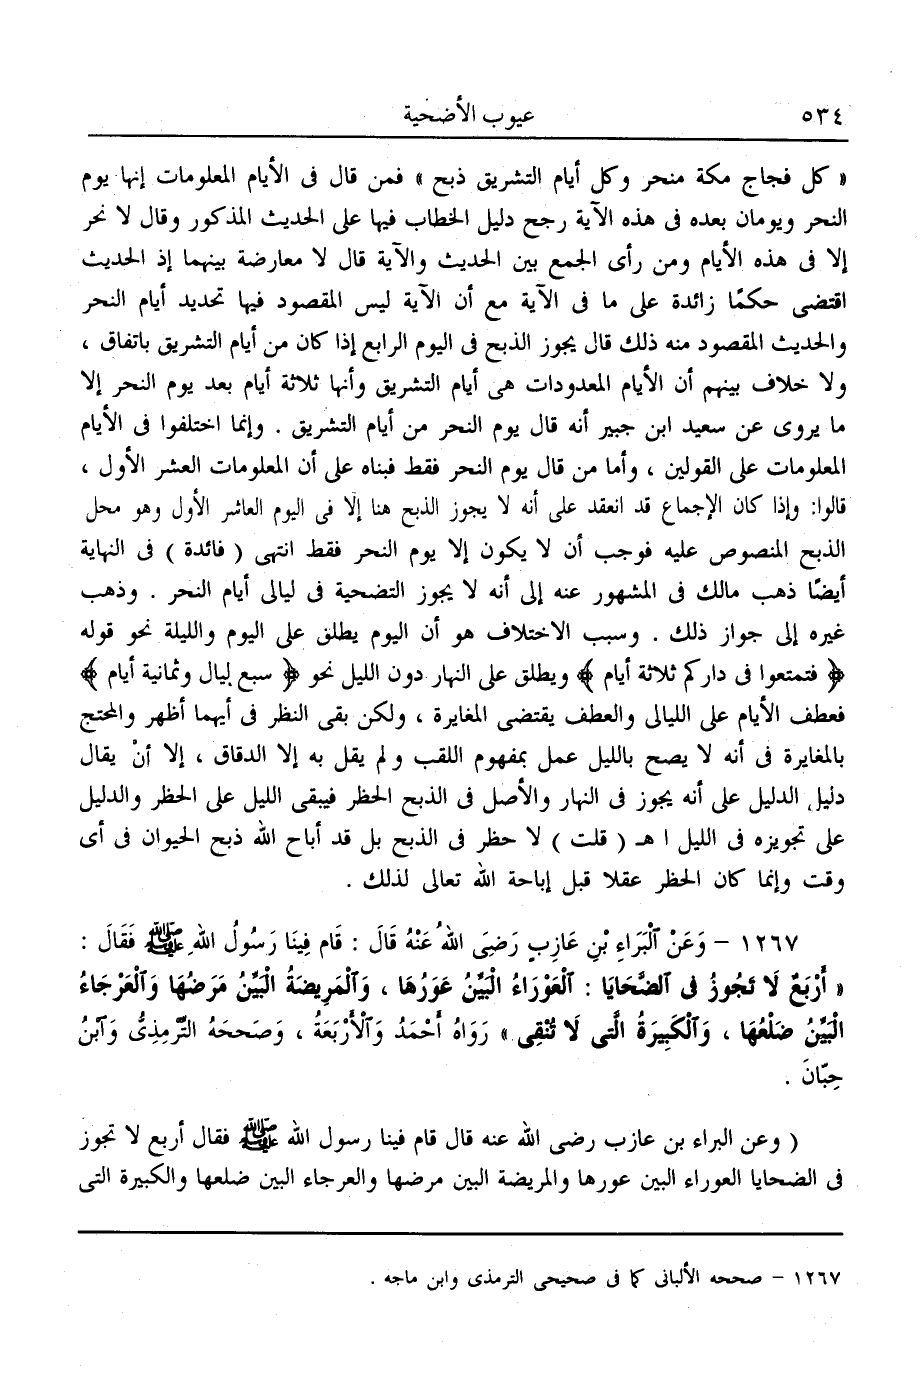 ٥٣٤
عيوب الأضحية
« كل فجاج مكة منحر وكل أيام التشريق ذبح » فمن قال فى الأيام المعلومات إنها يوم
النحر ويومان بعده فى هذه الآية رجح دليل الخطاب فيها على الحديث المذكور وقال لا نحر
إلا فى هذه الأيام ومن رأى الجمع بين الحديث والآية قال لا معارضة بينهما إذ الحديث
اقتضى حكمًا زائدة على ما فى الآية مع أن الآية ليس المقصود فيها تحديد أيام النحر
والحديث المقصود منه ذلك قال يجوز الذبح فى اليوم الرابع إذا كان من أيام التشريق باتفاق ،
ولا خلاف بينهم أن الأيام المعدودات هى أيام التشريق وأنها ثلاثة أيام بعد يوم النحر إلا
ما يروى عن سعيد ابن جبير أنه قال يوم النحر من أيام التشريق . وإنما اختلفوا فى الأيام
المعلومات على القولين ، وأما من قال يوم النحر فقط فبناه على أن المعلومات العشر الأول ،
قالوا: وإذا كان الإجماع قد انعقد على أنه لا يجوز الذبح هنا إلَّا فى اليوم العاشر الأول وهو محل
الذبح المنصوص عليه فوجب أن لا يكون إلا يوم النحر فقط انتهى ( فائدة ) فى النهاية
أيضًا ذهب مالك فى المشهور عنه إلى أنه لا يجوز التضحية فى ليالى أيام النحر . وذهب
غيره إلى جواز ذلك . وسبب الاختلاف هو أن اليوم يطلق على اليوم والليلة نحو قوله
﴿ فتمتعوا فى داركم ثلاثة أيام ﴾ ويطلق على النهار دون الليل نحو ﴿ سبع ليال وثمانية أيام ﴾
فعطف الأيام على الليالى والعطف يقتضى المغايرة ، ولكن بقى النظر فى أيهما أظهر والمحتج
بالمغايرة فى أنه لا يصح بالليل عمل بمفهوم اللقب ولم يقل به إلا الدقاق ، إلا أنْ يقال
دليل الدليل على أنه يجوز فى النهار والأصل فى الذبح الحظر فيبقى الليل على الحظر والدليل
على تجويزه فى الليل ا هـ ( قلت ) لا حظر فى الذبح بل قد أباح الله ذبح الحيوان فى أى
وقت وإنما كان الحظر عقلا قبل إباحة الله تعالى لذلك .
١٢٦٧ – وَعَنْ الْبَرَاءِ بْنِ عَازِبٍ رَضِىَ اللهُ عَنْهُ قَالَ : قَام فِينَا رَسُولُ اللهِ ﷺ فَقَالَ :
« أَرْبَعٌ لَا تَجُوزُ فِى الضَّحَايَا : الْعَوْرَاءُ الْبَيِّنُ عَوَرُهَا ، وَالْمَرِيضَةُ الْبَيِّنُ مَرَضُهَا وَالْعَرْجَاءُ
الْبَيِّنُ ضَلْعُهَا ، وَالْكَبِيرَةُ الَّتِى لَا تُنْقِى » رَوَاهُ أَحْمَدُ وَالْأَرْبَعَةُ ، وَصَححَهُ التِّرمِذِىُّ وَابْنُ
حِبّانَ .
( وعن البراء بن عازب رضى الله عنه قال قام فينا رسول الله ﷺ فقال أربع لا تجوز
فى الضحايا العوراء البين عورها والمريضة البين مرضها والعرجاء البين ضلعها والكبيرة التى
١٢٦٧ – صححه الألبانى كما فى صحيحى الترمذى وابن ماجه .